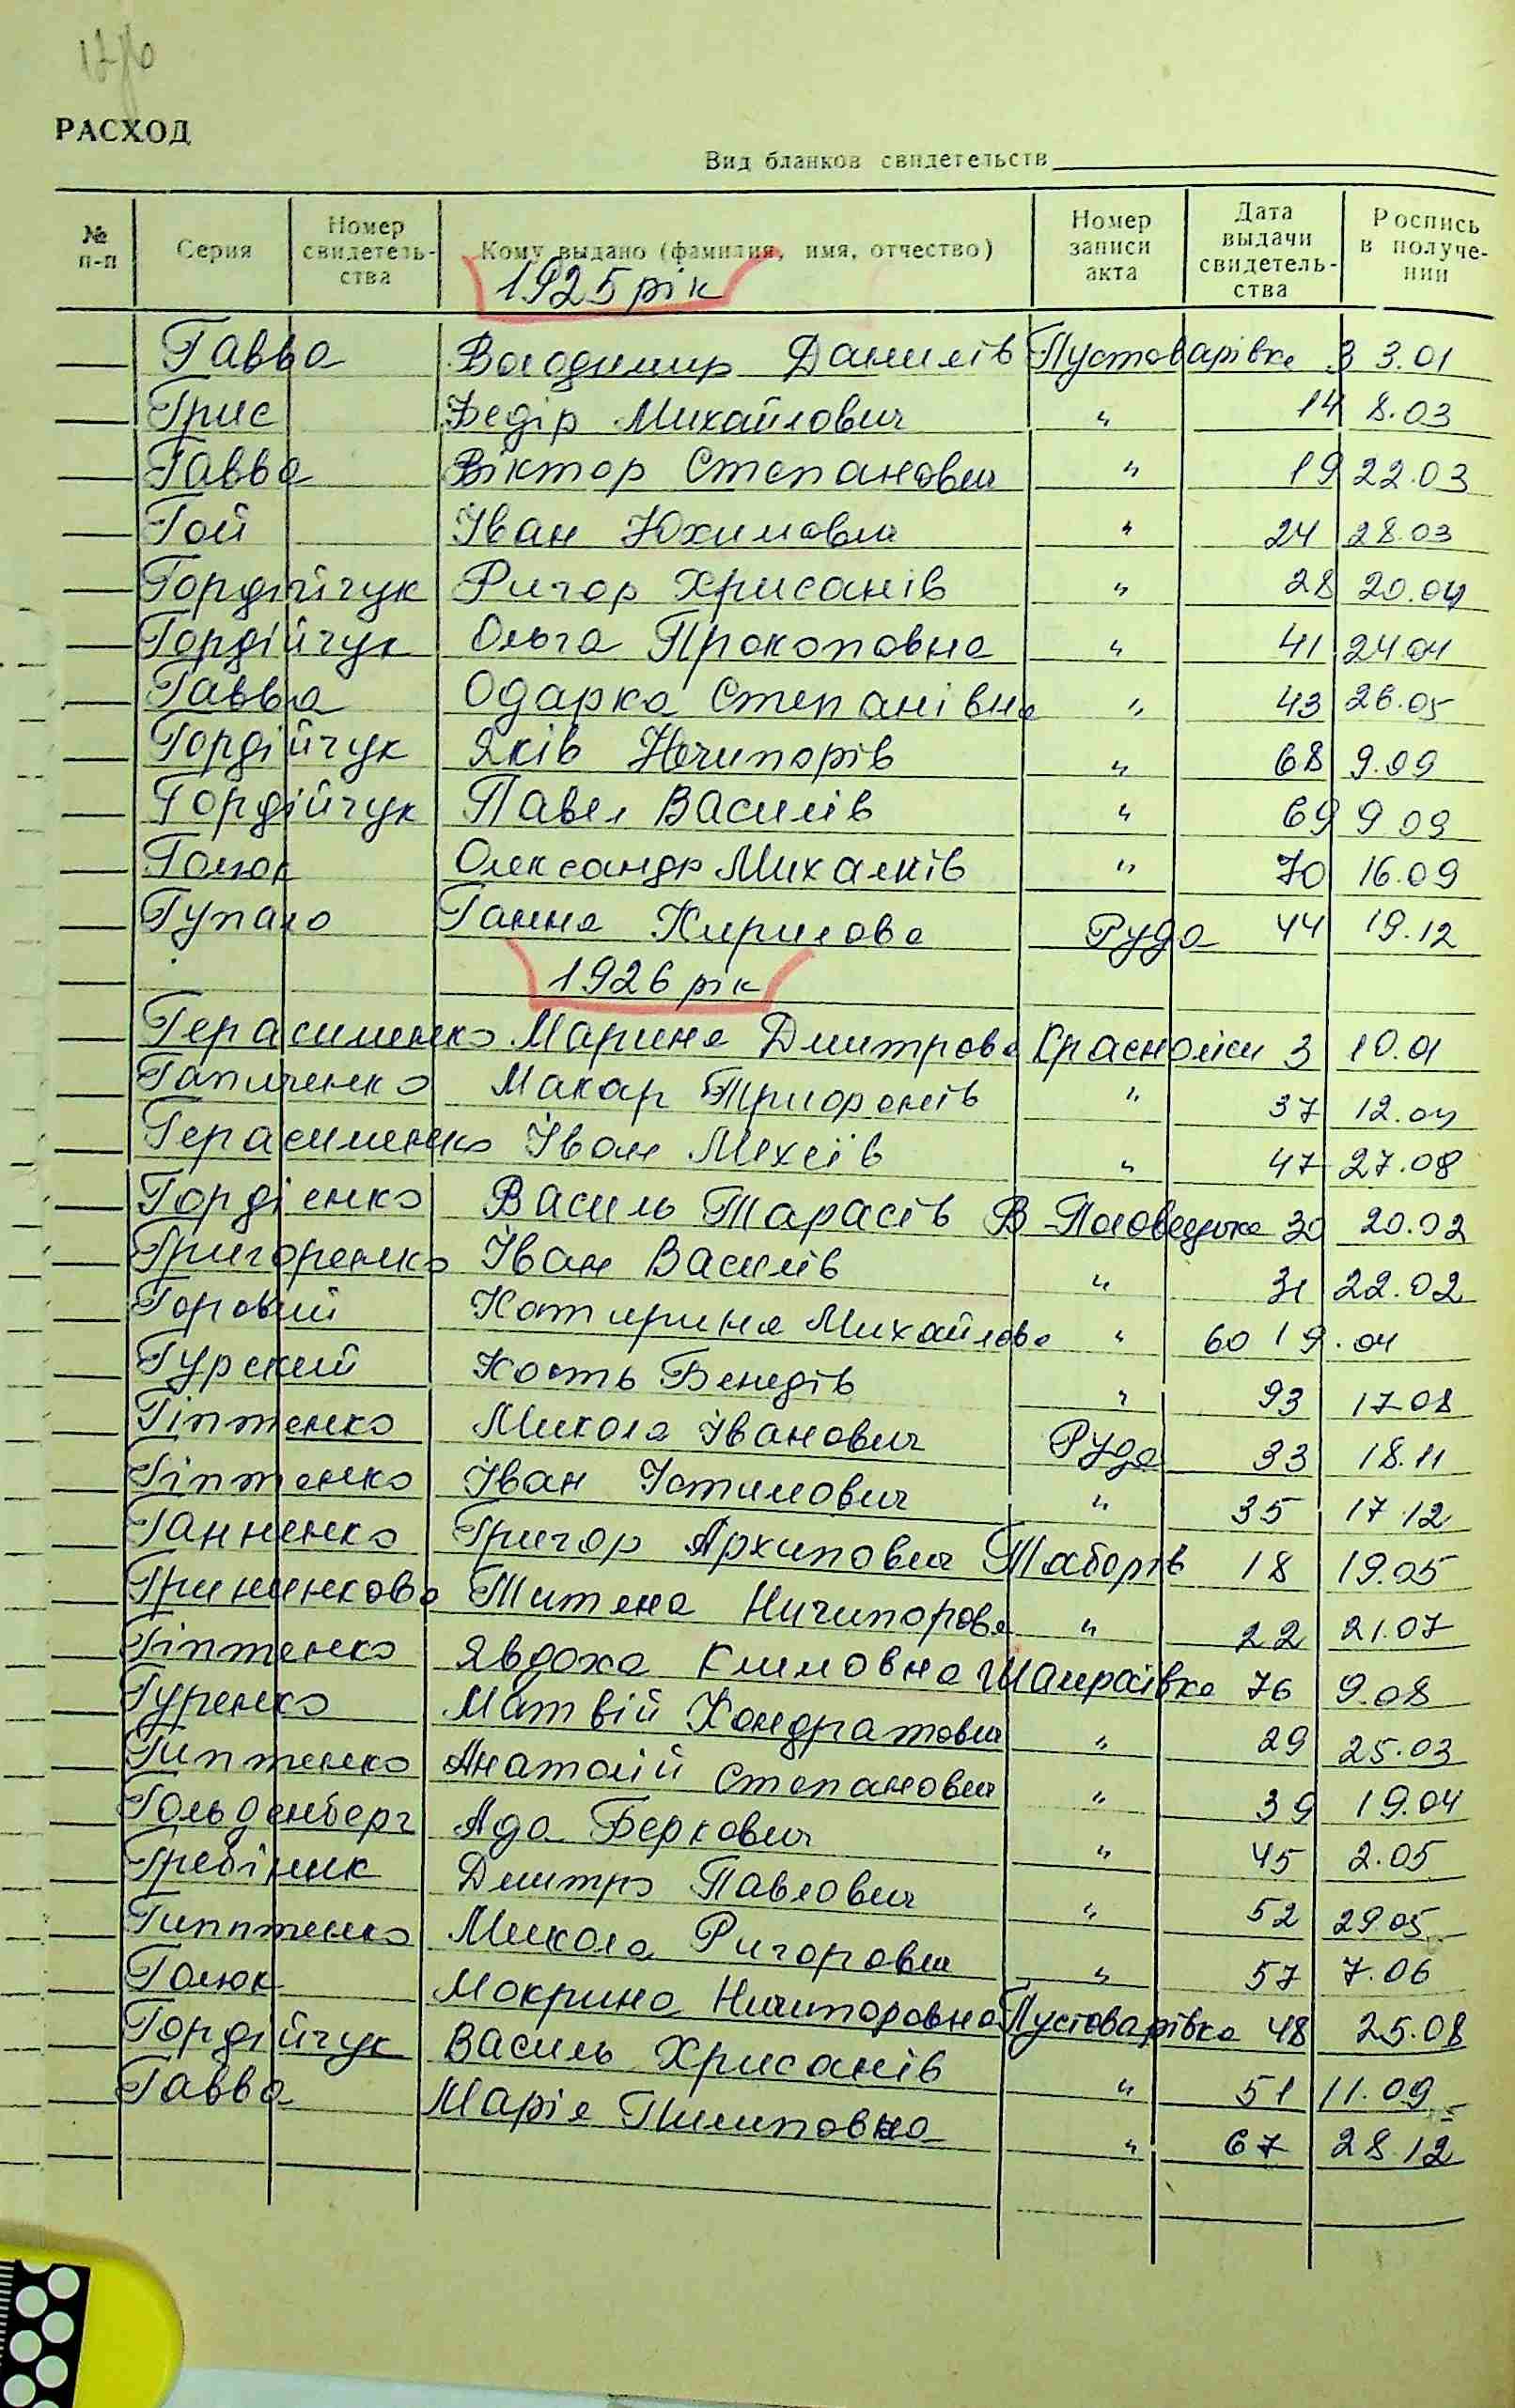 РАСХОД
Вид бланков свидетельств
№ п-п Серия Номер свидетель-ства Кому выдано (фамилия, имя, отчество) Номер записи акта Дата выдачи свидетель-ства Роспись в получе-нии
1925 рік
Гавва Володимир Данилів Пустоварівка 3 3.01
Грис Федір Михайлович " 14 8.03
Гавва Віктор Степанович " 19 22.03
Гой Іван Юхимович " 24 28.03
Гордійчук Ригор Хрисанів " 28 20.04
Гордійчук Ольга Прокоповна " 41 24.04
Гавва Одарка Степанівна " 43 26.05
Гордійчук Яків Нечипорів " 68 9.09
Гордійчук Павел Василів " 69 9 09
Голюк Олександр Михалків " 70 16.09
Гупало Ганна Кирилова Руда 44 19.12
1926 рік
Герасименко Марина Дмитрова Красноліси 3 10.01
Гапиченко Макар " 37 12.04
Герасименко Іван " 47 27.08
Гордієнко Василь Тарасів В-Половецьке 30 20.02
Григоренко Іван Василів " 31 22.02
Горовий Катирина Михайлова " 60 19.04
Гурский Кость Бенедів " 93 17.08
Гіптенко Микола Іванович Руда 33 18.11
Гіптенко Іван Устимович " 35 17.12
Ганненко Григор Архипович Таборів 18 19.05
Гриненкова Титяна Ничипорова " 22 21.07
Гіптенко Явдоха Климовна Шамраївка 76 9.08
Гуренко Матвій Кондратович " 29 25.03
Гиптенко Анатолій Степанович " 39 19.04
Гольденберг Ада Беркович " 45 2.05
Гребіник Дмитро Павлович " 52 29.05
Гипптенко Микола Ригорович " 57 7.06
Голюк Мокрина Ничипоровна Пустоварівка 48 25.08
Гордійчук Василь Хрисанів " 51 11.09
Гавва Марія Пилиповна " 67 28.12